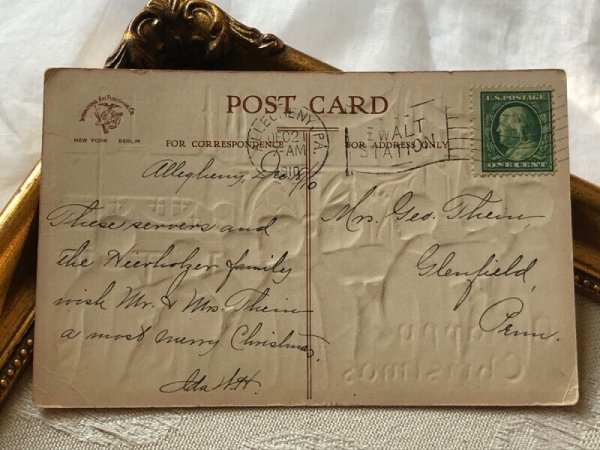 INTERNATIONAL ART PUBLISHING CO.
NEW YORK BERLIN
POST CARD
FOR CORRESPONDENCE
FOR ADDRESS ONLY
ALLEGHENY, PA.
DEC 2
-AM
1910
EWALT
STATION
U.S. POSTAGE
ONE CENT
Allegheny,
These servers and
the Hierholzer family
wish Mr. & Mrs. Thein
a most merry Christmas.
Ida W.H.
Mrs. Geo. Thein,
Glenfield,
Penn.
Happy
Christmas